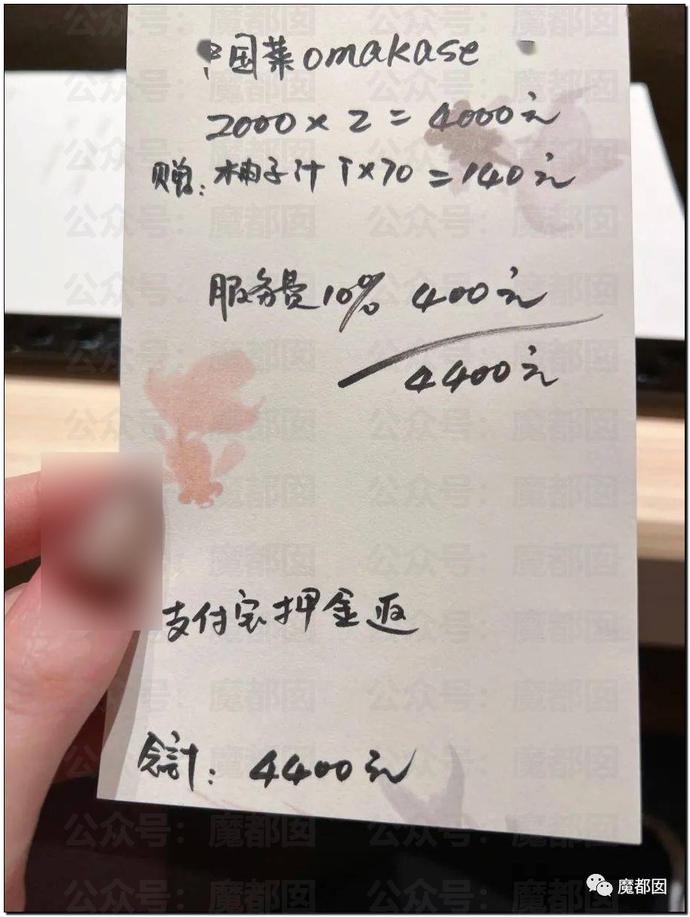 中国菜omakase
2000×2=4000元
赠:柚子汁 1×70=140元
服务费10% 400元
4400元
支付宝押金返
合計:4400元
公众号:魔都囡
魔都囡